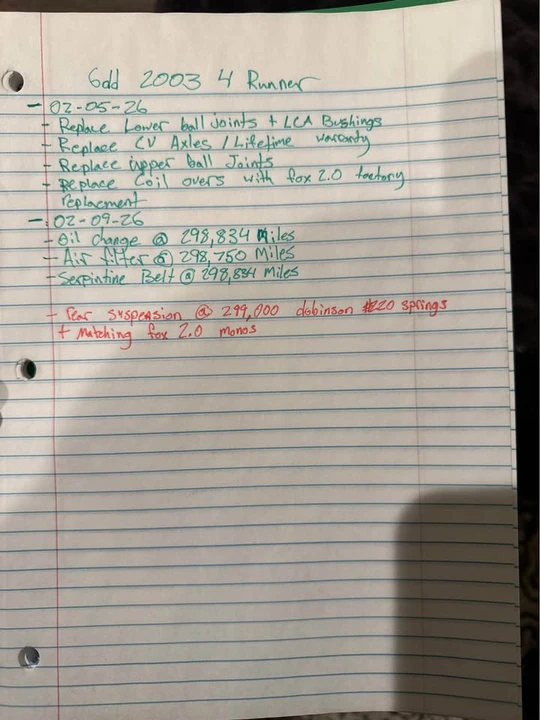 Gdd 2003 4 Runner
- 02-05-26
- Replace Lower ball Joints + LCA Bushings
- Replace CV Axles / Lifetime warranty
- Replace upper ball Joints
- Replace Coil overs with fox 2.0 factory
replacment
- 02-09-26
- Oil change @ 298,834 Miles
- Air filter @ 298,750 Miles
- Serpintine Belt @ 298,834 Miles
- rear suspension @ 299,000 dobinson 220 springs
+ Matching fox 2.0 monos